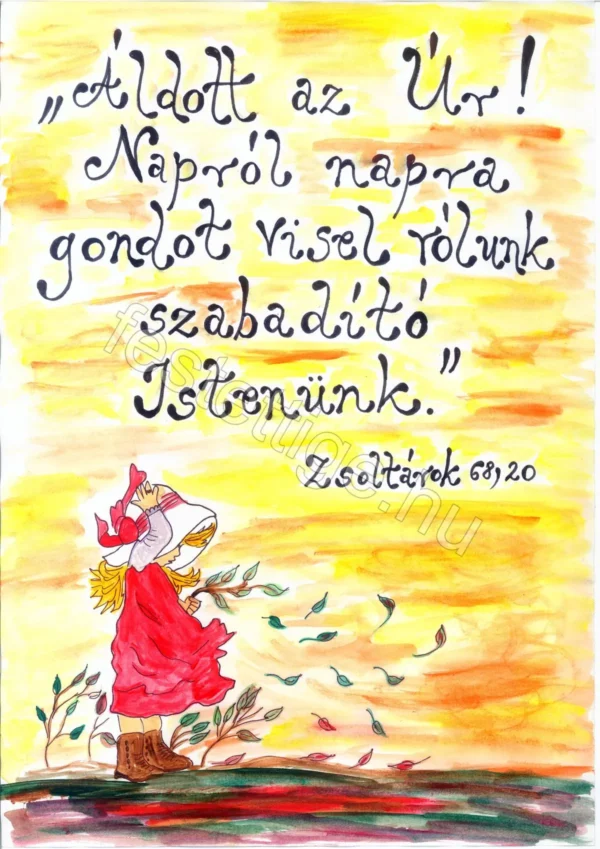 „Áldott az Úr!
Napról napra
gondot visel rólunk
szabadító
Istenünk.”
Zsoltárok 68,20
festettige.hu